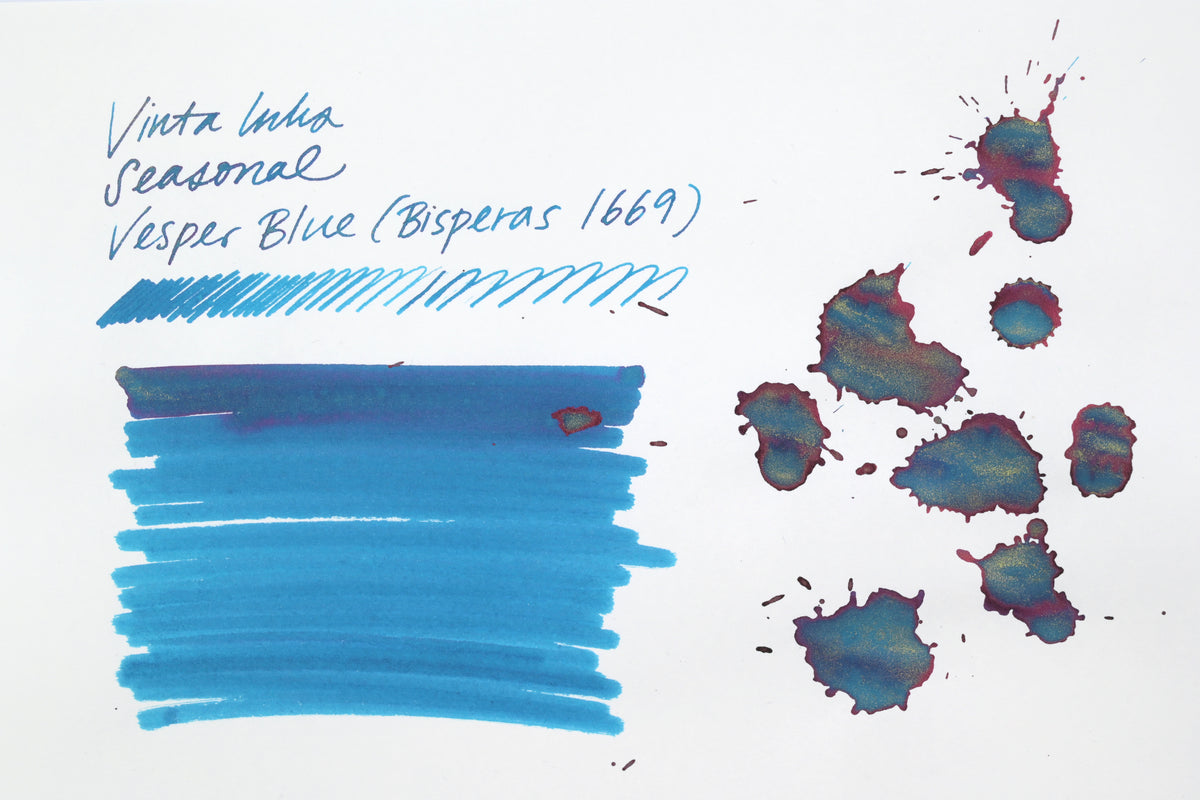 Vinta Inks
Seasonal
Vesper Blue (Bisperas 1669)